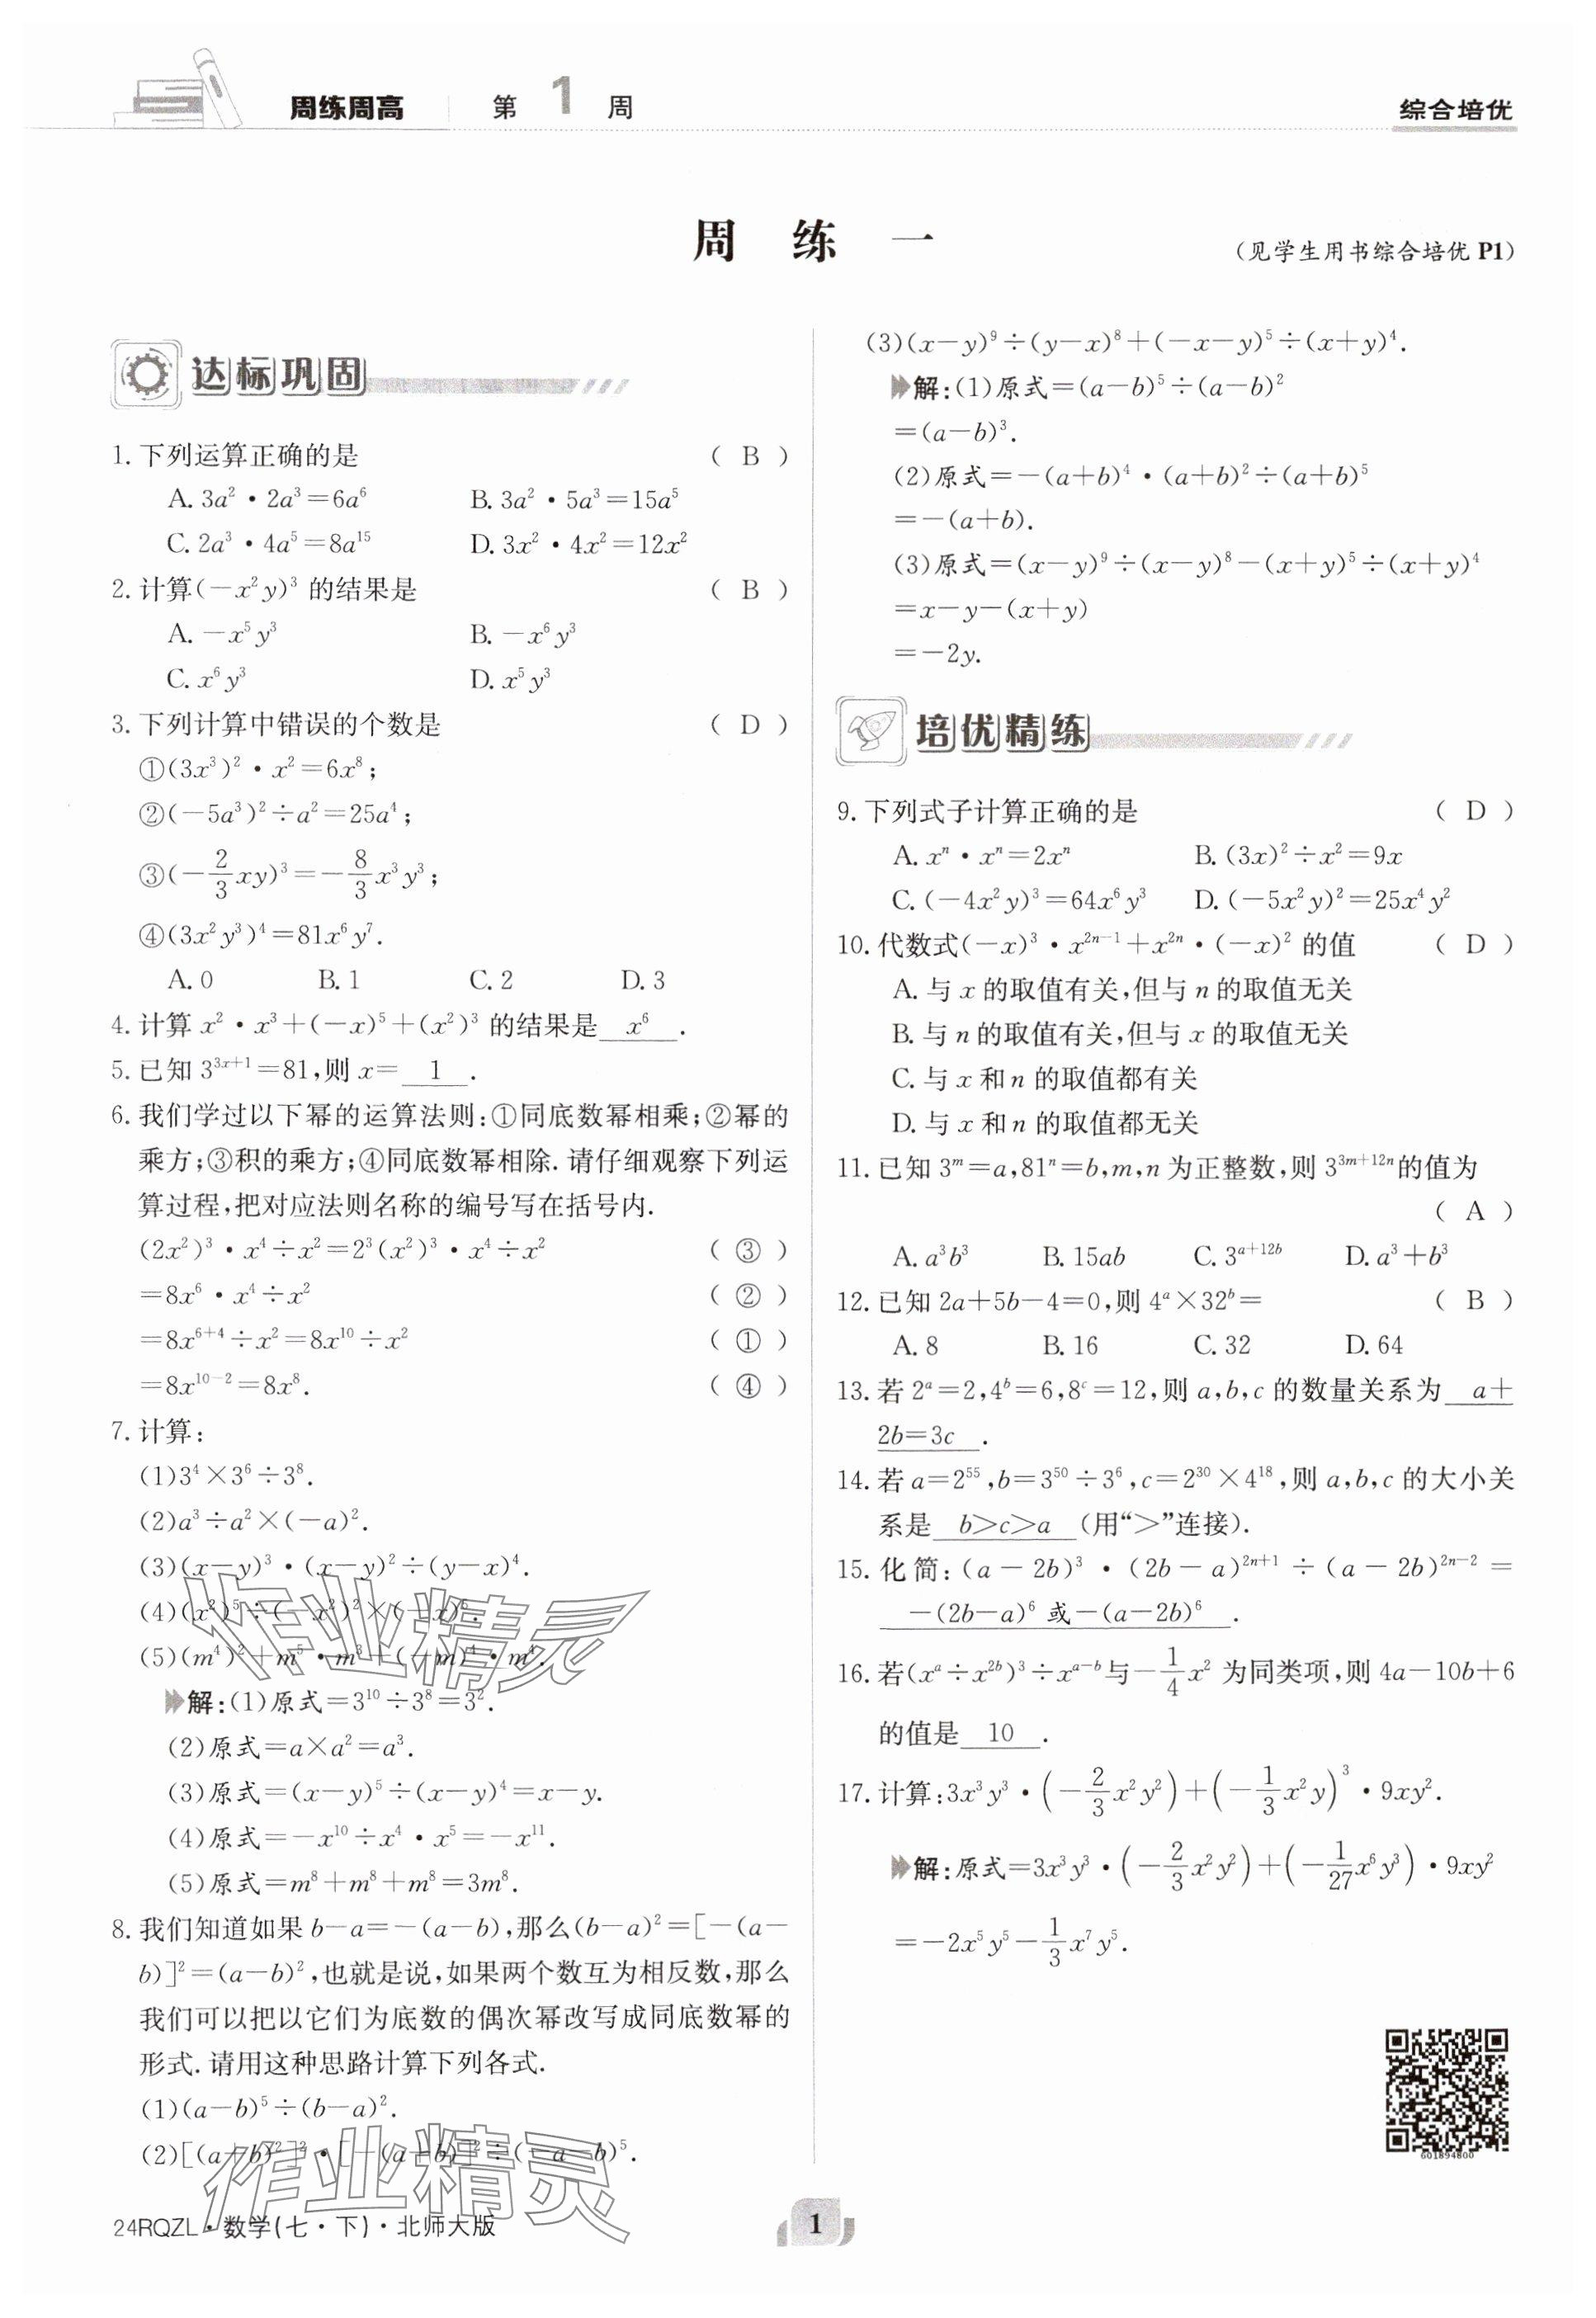 周练周高 第1周 综合培优
周 练 一
(见学生用书综合培优 P1)
达标巩固
1. 下列运算正确的是 ( B )
A. 3a²·2a³=6a⁶ B. 3a²·5a³=15a⁵
C. 2a³·4a⁵=8a¹⁵ D. 3x²·4x²=12x²
2. 计算(-x²y)³ 的结果是 ( B )
A. -x⁵y³ B. -x⁶y³
C. x⁶y³ D. x⁵y³
3. 下列计算中错误的个数是 ( D )
①(3x³)²·x²=6x⁸;
②(-5a³)²÷a²=25a⁴;
③(-2/3xy)³=-8/3x³y³;
④(3x²y³)⁴=81x⁶y⁷.
A. 0 B. 1 C. 2 D. 3
4. 计算 x²·x³+(-x)⁵+(x²)³ 的结果是 x⁶ .
5. 已知 3³ˣ⁺¹=81,则 x= 1 .
6. 我们学过以下幂的运算法则:①同底数幂相乘;②幂的
乘方;③积的乘方;④同底数幂相除. 请仔细观察下列运
算过程,把对应法则名称的编号写在括号内.
(2x²)³·x⁴÷x²=2³(x²)³·x⁴÷x² ( ③ )
=8x⁶·x⁴÷x² ( ② )
=8x⁶⁺⁴÷x²=8x¹⁰÷x² ( ① )
=8x¹⁰⁻²=8x⁸. ( ④ )
7. 计算:
(1)3⁴×3⁶÷3⁸.
(2)a³÷a²×(-a)².
(3)(x-y)³·(x-y)²÷(y-x)⁴.
(4)(x²)⁵÷(-x²)²×(-x)⁵.
(5)(m⁴)²+m⁵·m³+(-m)⁴·m⁴.
解:(1)原式=3¹⁰÷3⁸=3².
(2)原式=a×a²=a³.
(3)原式=(x-y)⁵÷(x-y)⁴=x-y.
(4)原式=-x¹⁰÷x⁴·x⁵=-x¹¹.
(5)原式=m⁸+m⁸+m⁸=3m⁸.
8. 我们知道如果 b-a=-(a-b),那么(b-a)²=[-(a-
b)]²=(a-b)²,也就是说,如果两个数互为相反数,那么
我们可以把以它们为底数的偶次幂改写成同底数幂的
形式. 请用这种思路计算下列各式.
(1)(a-b)⁵÷(b-a)².
(2)[(a+b)²]²·[-(a+b)]²÷(-a-b)⁵.
(3)(x-y)⁹÷(y-x)⁸+(-x-y)⁵÷(x+y)⁴.
解:(1)原式=(a-b)⁵÷(a-b)²
=(a-b)³.
(2)原式=-(a+b)⁴·(a+b)²÷(a+b)⁵
=-(a+b).
(3)原式=(x-y)⁹÷(x-y)⁸-(x+y)⁵÷(x+y)⁴
=x-y-(x+y)
=-2y.
培优精练
9. 下列式子计算正确的是 ( D )
A. xⁿ·xⁿ=2xⁿ B. (3x)²÷x²=9x
C. (-4x²y)³=64x⁶y³ D. (-5x²y)²=25x⁴y²
10. 代数式(-x)³·x²ⁿ⁻¹+x²ⁿ·(-x)² 的值 ( D )
A. 与 x 的取值有关,但与 n 的取值无关
B. 与 n 的取值有关,但与 x 的取值无关
C. 与 x 和 n 的取值都有关
D. 与 x 和 n 的取值都无关
11. 已知 3ᵐ=a,81ⁿ=b,m,n 为正整数,则 3³ᵐ⁺¹²ⁿ的值为
( A )
A. a³b³ B. 15ab C. 3ᵃ⁺¹²ᵇ D. a³+b³
12. 已知 2a+5b-4=0,则 4ᵃ×32ᵇ= ( B )
A. 8 B. 16 C. 32 D. 64
13. 若 2ᵃ=2,4ᵇ=6,8ᶜ=12,则 a,b,c 的数量关系为 a+
2b=3c .
14. 若 a=2⁵⁵,b=3⁵⁰÷3⁶,c=2³⁰×4¹⁸,则 a,b,c 的大小关
系是 b>c>a (用“>”连接).
15. 化简:(a-2b)³·(2b-a)²ⁿ⁺¹÷(a-2b)²ⁿ⁻²=
-(2b-a)⁶ 或-(a-2b)⁶ .
16. 若(xᵃ÷x²ᵇ)³÷xᵃ⁻ᵇ与-1/4x² 为同类项,则 4a-10b+6
的值是 10 .
17. 计算:3x³y³·(-2/3x²y²)+(-1/3x²y)³·9xy².
解:原式=3x³y³·(-2/3x²y²)+(-1/27x⁶y³)·9xy²
=-2x⁵y⁵-1/3x⁷y⁵.
601894800
作业精灵
作业精灵
24RQZL·数学(七·下)·北师大版
1